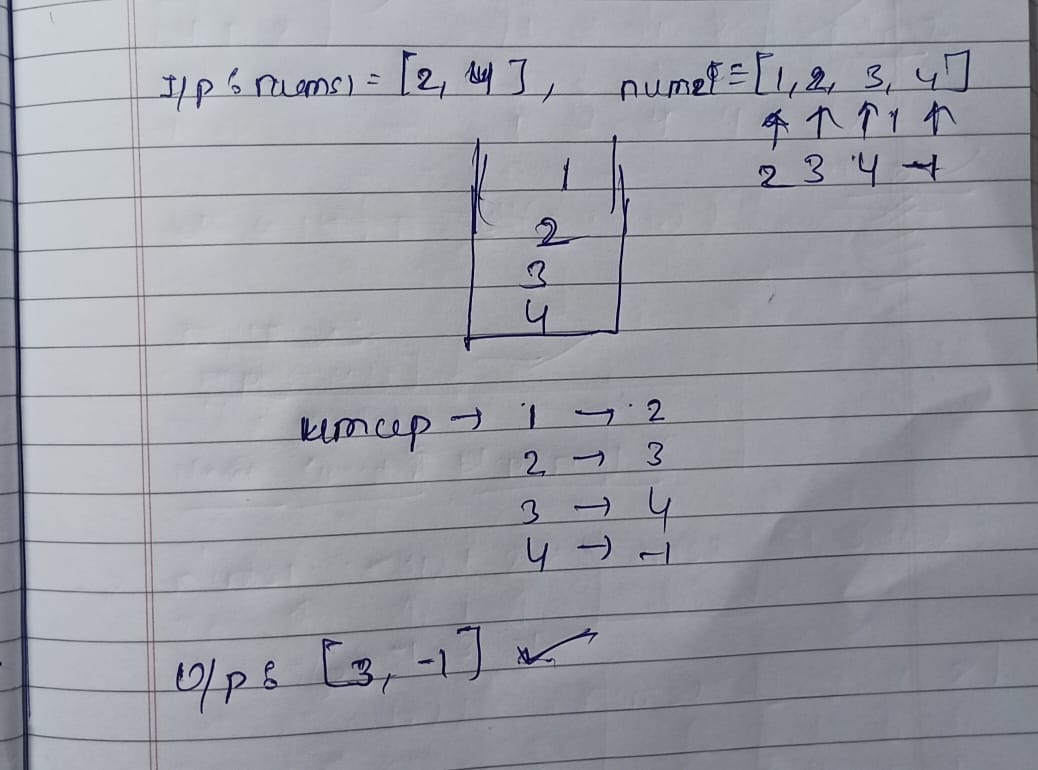 I/p : nums1 = [2, 4], nums2 = [1, 2, 3, 4]
↑ ↑ ↑ ↑
2 3 4 -1
1
2
3
4
→ 1 → 2
2 → 3
3 → 4
4 → -1
O/p : [3, -1] ✓